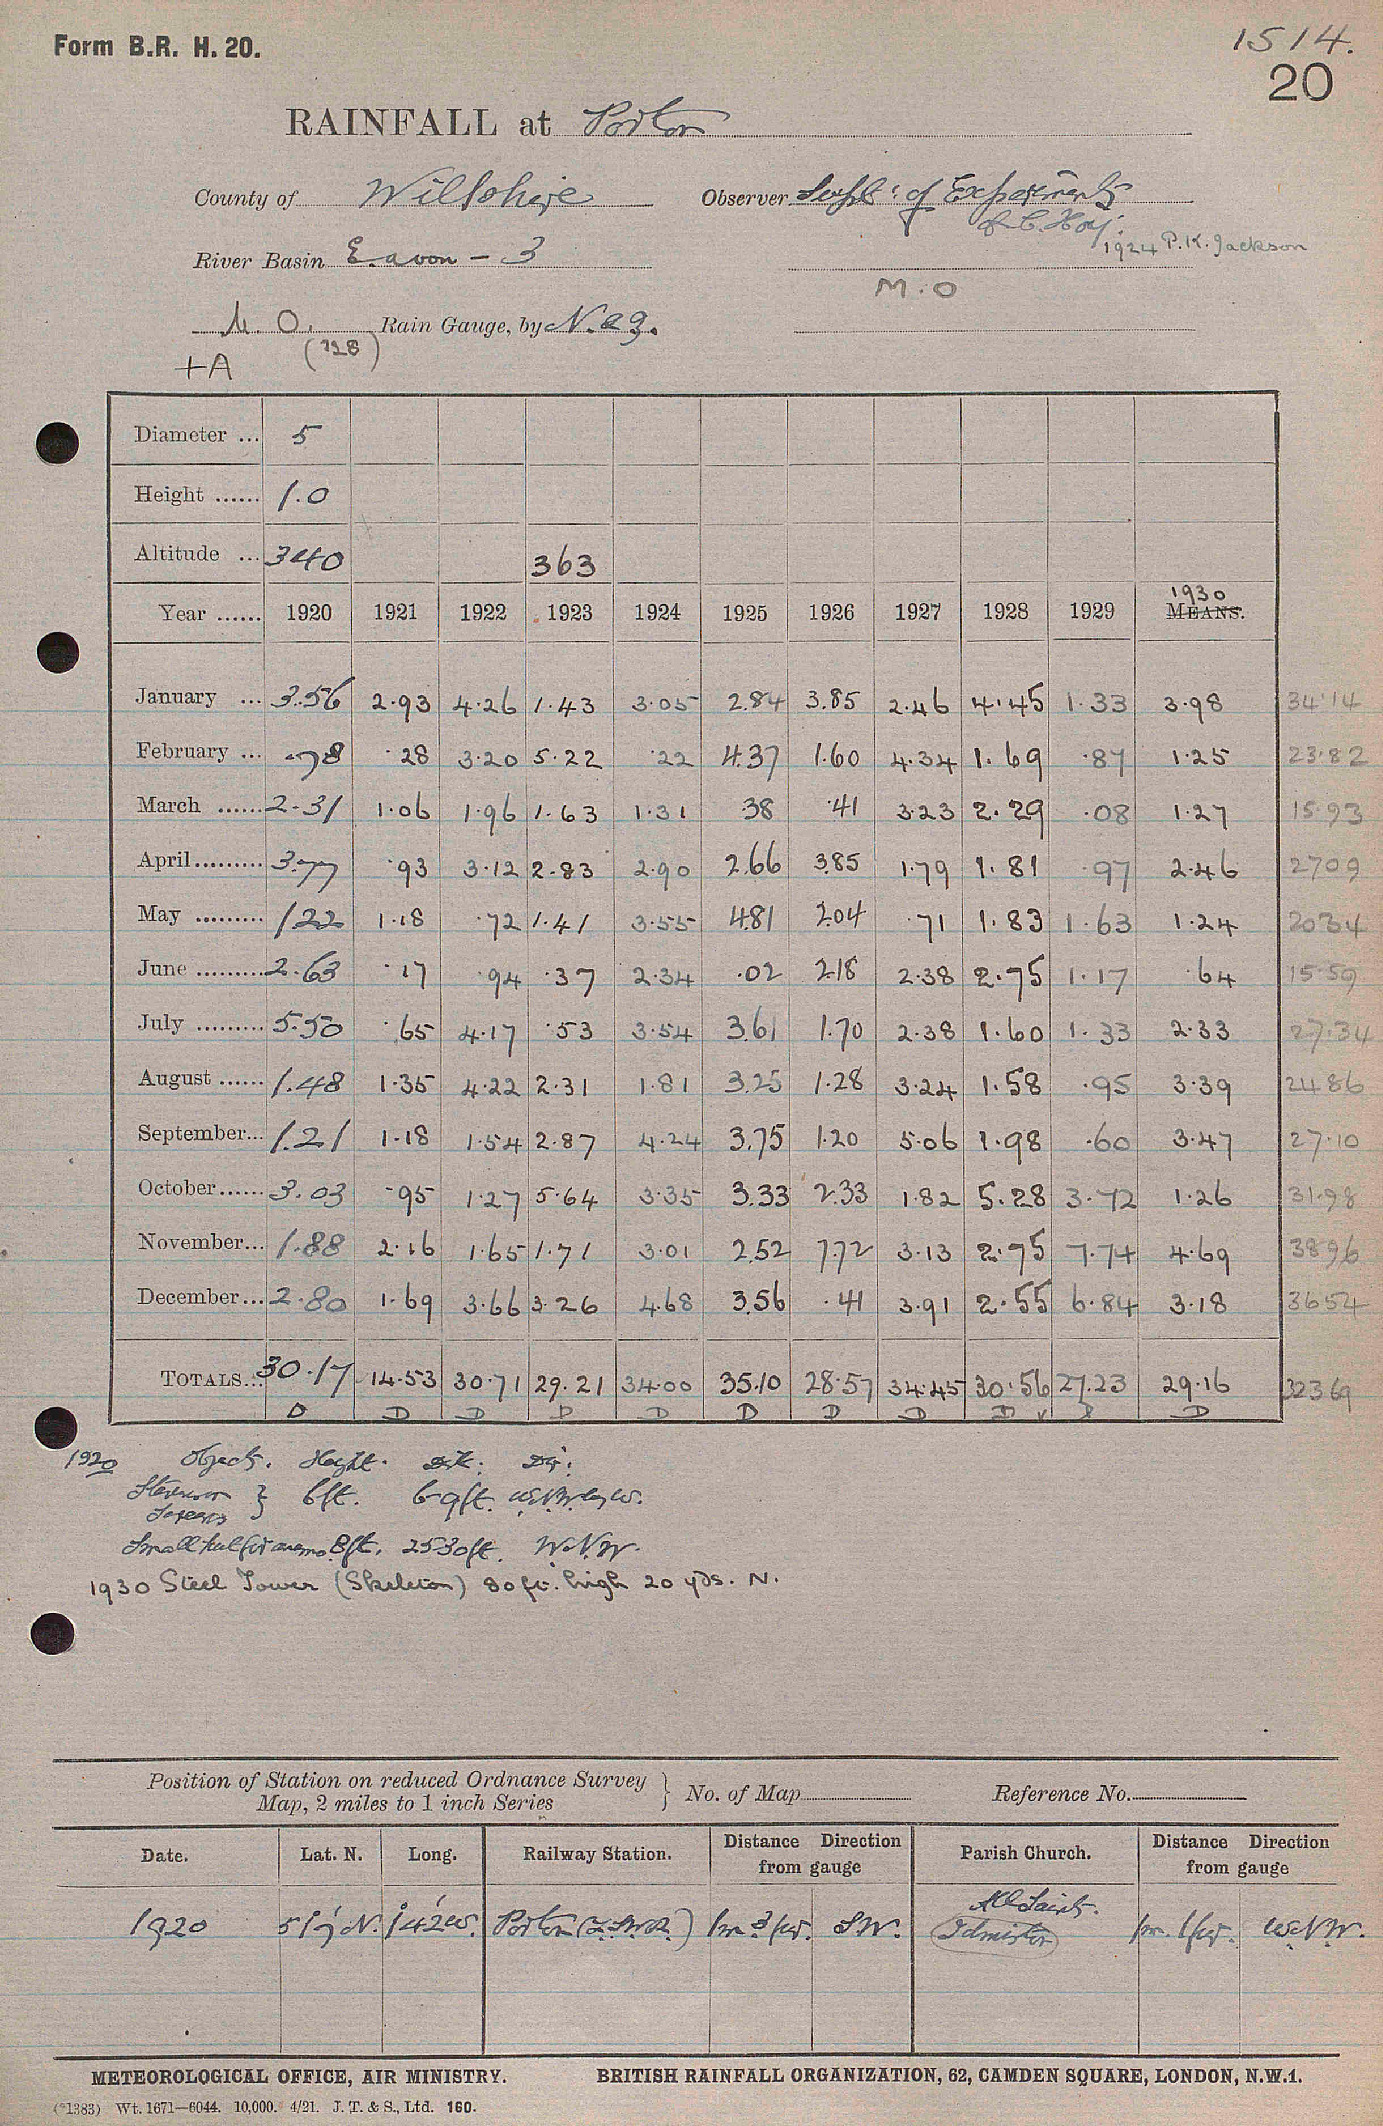 Form B.R. H. 20.
1514.
20
RAINFALL at Porton
County of Wiltshire Observer Supt: of Experiments
1924 P.K. Jackson
River Basin E. avon - 3
M.O
M.O. Rain Gauge, by N. & Z.
+A (728)
Diameter ... 5
Height ...... 1.0
Altitude ... 340 363
Year ...... 1920 1921 1922 1923 1924 1925 1926 1927 1928 1929 1930 MEANS.
January ... 3.56 2.93 4.26 1.43 3.05 2.84 3.85 2.46 4.45 1.33 3.98 34.14
February ... .78 .28 3.20 5.22 .22 4.37 1.60 4.34 1.69 .87 1.25 23.82
March ...... 2.31 1.06 1.96 1.63 1.31 .38 .41 3.23 2.29 .08 1.27 15.93
April ......... 3.77 .93 3.12 2.83 2.90 2.66 3.85 1.79 1.81 .97 2.46 27.09
May ......... 1.22 1.18 .72 1.41 3.55 4.81 2.04 .71 1.83 1.63 1.24 20.34
June ......... 2.63 .17 .94 .37 2.34 .02 2.18 2.38 2.75 1.17 .64 15.59
July ......... 5.50 .65 4.17 .53 3.54 3.61 1.70 2.38 1.60 1.33 2.33 27.34
August ...... 1.48 1.35 4.22 2.31 1.81 3.25 1.28 3.24 1.58 .95 3.39 24.86
September... 1.21 1.18 1.54 2.87 4.24 3.75 1.20 5.06 1.98 .60 3.47 27.10
October...... 3.03 .95 1.27 5.64 3.35 3.33 2.33 1.82 5.28 3.72 1.26 31.98
November... 1.88 2.16 1.65 1.71 3.01 2.52 7.72 3.13 2.75 7.74 4.69 38.96
December... 2.80 1.69 3.66 3.26 4.68 3.56 .41 3.91 2.55 6.84 3.18 36.54
TOTALS... 30.17 14.53 30.71 29.21 34.00 35.10 28.57 34.45 30.56 27.23 29.16 323.69
D D D D D D D D D D
1920 Object. Height. Dist: Dir:
Stevenson Screens } 6ft. 6-9ft. W.N.W. by W.
Small hut for anemo 8ft. 25 30ft. W.N.W.
1930 Steel Tower (Skeleton) 80 ft. high 20 yds. N.
Position of Station on reduced Ordnance Survey
Map, 2 miles to 1 inch Series } No. of Map Reference No.
Date. Lat. N. Long. Railway Station. Distance Direction from gauge Parish Church. Distance Direction from gauge
All Saints.
1920 51 7' N. 1° 42' W. Porton (L.S.W.R.) 1m 3 fur. S.W. Idmiston 1m. 1 fur. W.N.W.
METEOROLOGICAL OFFICE, AIR MINISTRY. BRITISH RAINFALL ORGANIZATION, 62, CAMDEN SQUARE, LONDON, N.W.1.
(*1383) Wt. 1671—6044. 10,000. 4/21. J. T. & S., Ltd. 160.